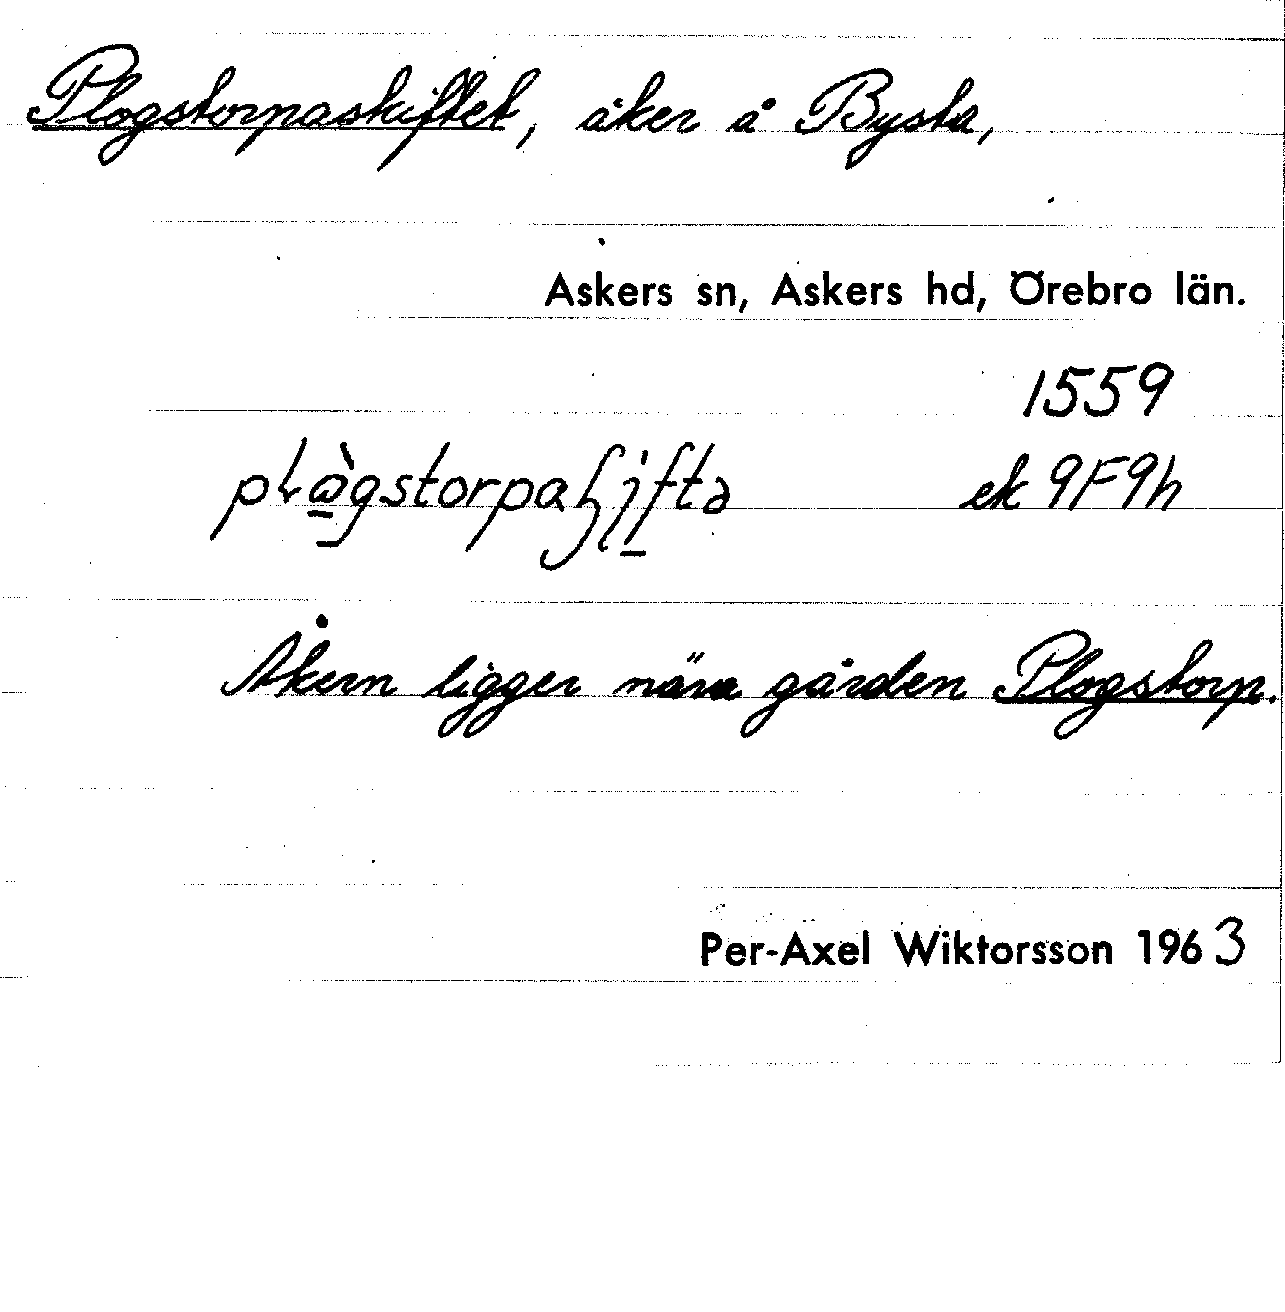 Plogstorpaskiftet, åker å Bysta,
Askers sn, Askers hd, Örebro län.
1559
ek 9F9h
Åkern ligger nära gården Plogstorp.
Per-Axel Wiktorsson 1963